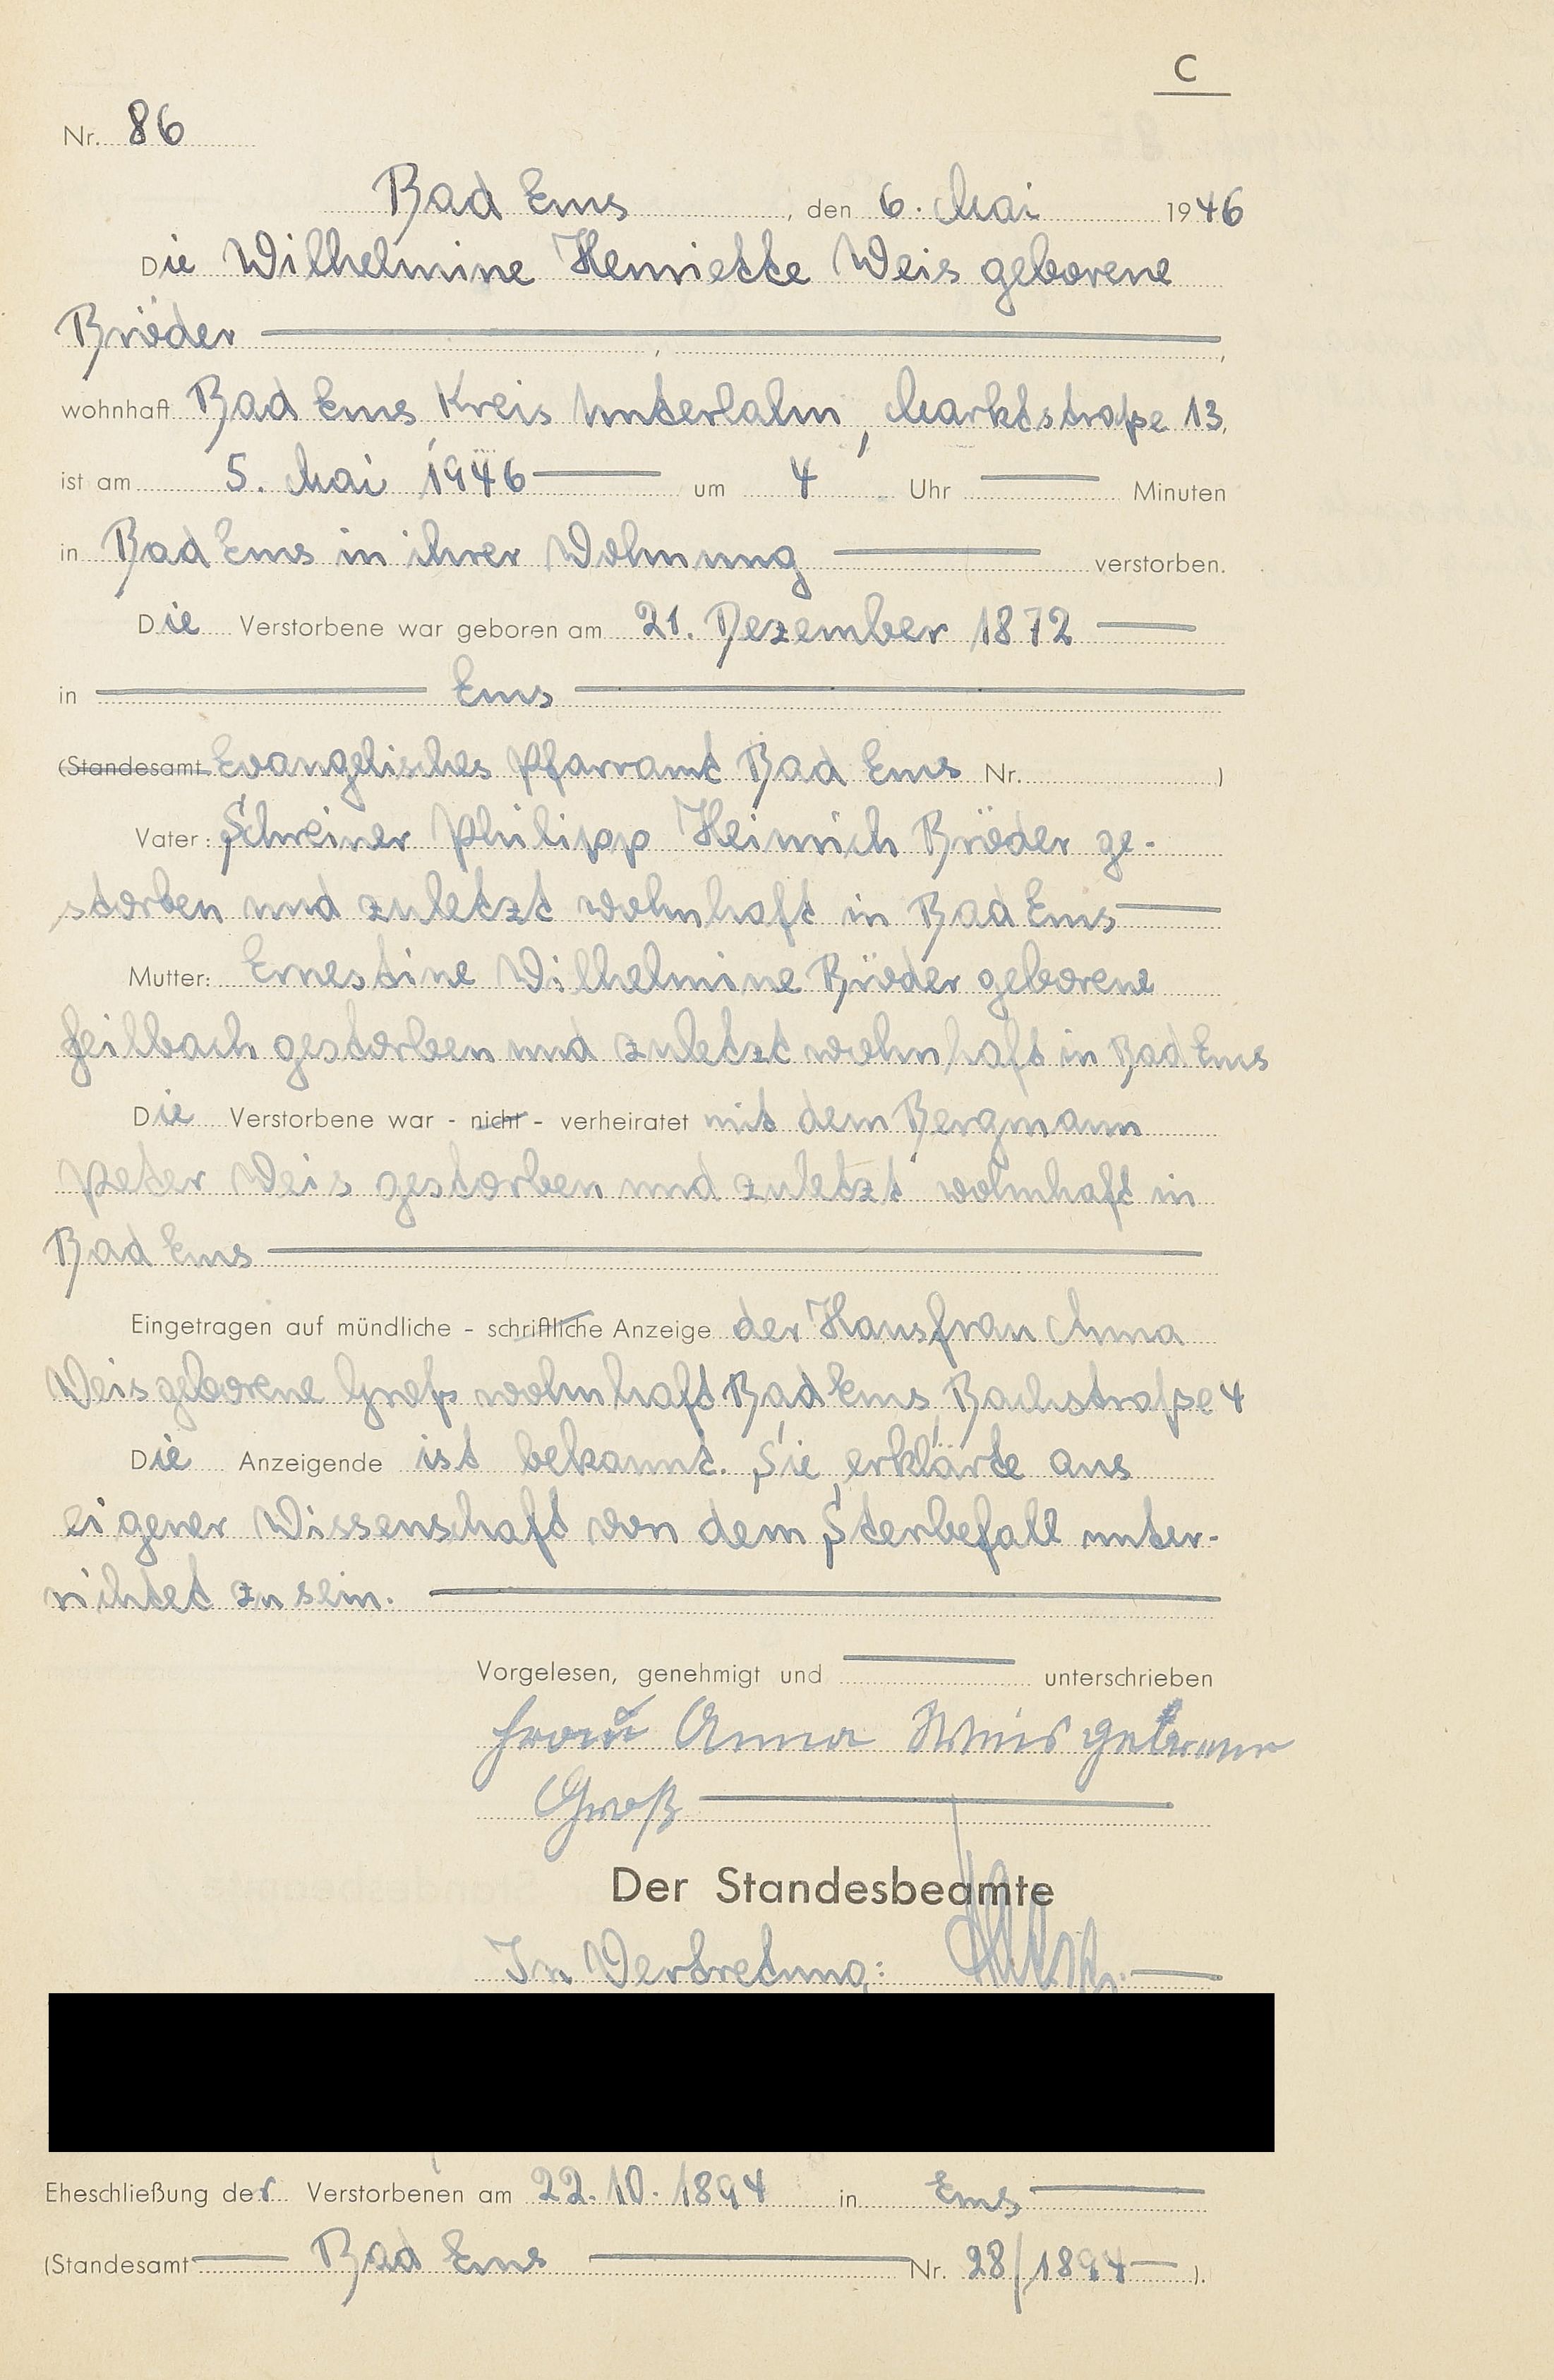 C
Nr. 86
Bad Ems, den 6. Mai 1946
Die Wilhelmine Henriette Weis geborene
Bröder
wohnhaft Bad Ems, Kreis Unterlahn, Marktstraße 13,
ist am 5. Mai 1946 um 4 Uhr Minuten
in Bad Ems in ihrer Wohnung verstorben.
Die Verstorbene war geboren am 21. Dezember 1872
in Ems
(Standesamt Evangelisches Pfarramt Bad Ems Nr. )
Vater: Schreiner Philipp Heinrich Bröder ge-
storben und zuletzt wohnhaft in Bad Ems
Mutter: Ernestine Wilhelmine Bröder geborene
Feilbach gestorben und zuletzt wohnhaft in Bad Ems
Die Verstorbene war - nicht - verheiratet mit dem Bergmann
Peter Weis gestorben und zuletzt wohnhaft in
Bad Ems
Eingetragen auf mündliche - schriftliche Anzeige der Hausfrau Anna
Weis geborene Groß wohnhaft Bad Ems, Bachstraße 4
Die Anzeigende ist bekannt. Sie erklärte, aus
eigener Wissenschaft von dem Sterbefall unter-
richtet zu sein.
Vorgelesen, genehmigt und unterschrieben
Frau Anna Weis geborene
Groß
Der Standesbeamte
In Vertretung:
Eheschließung der Verstorbenen am 22.10.1894 in Ems
(Standesamt Bad Ems Nr. 28/1894 ).